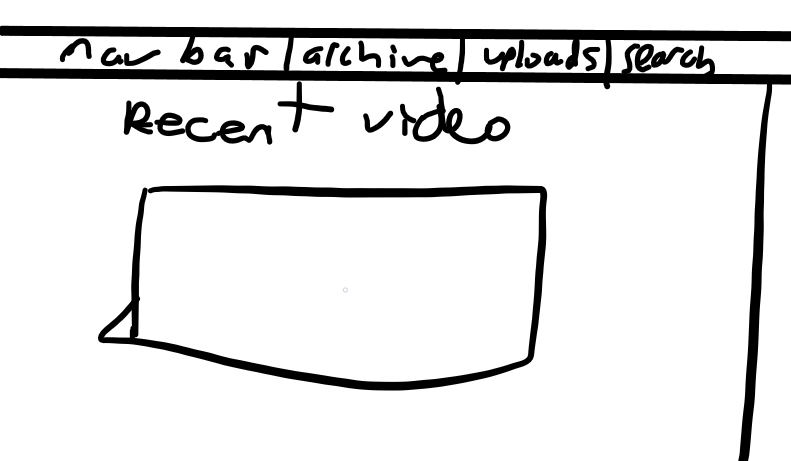 nav bar | archive | uploads | search
Recent video